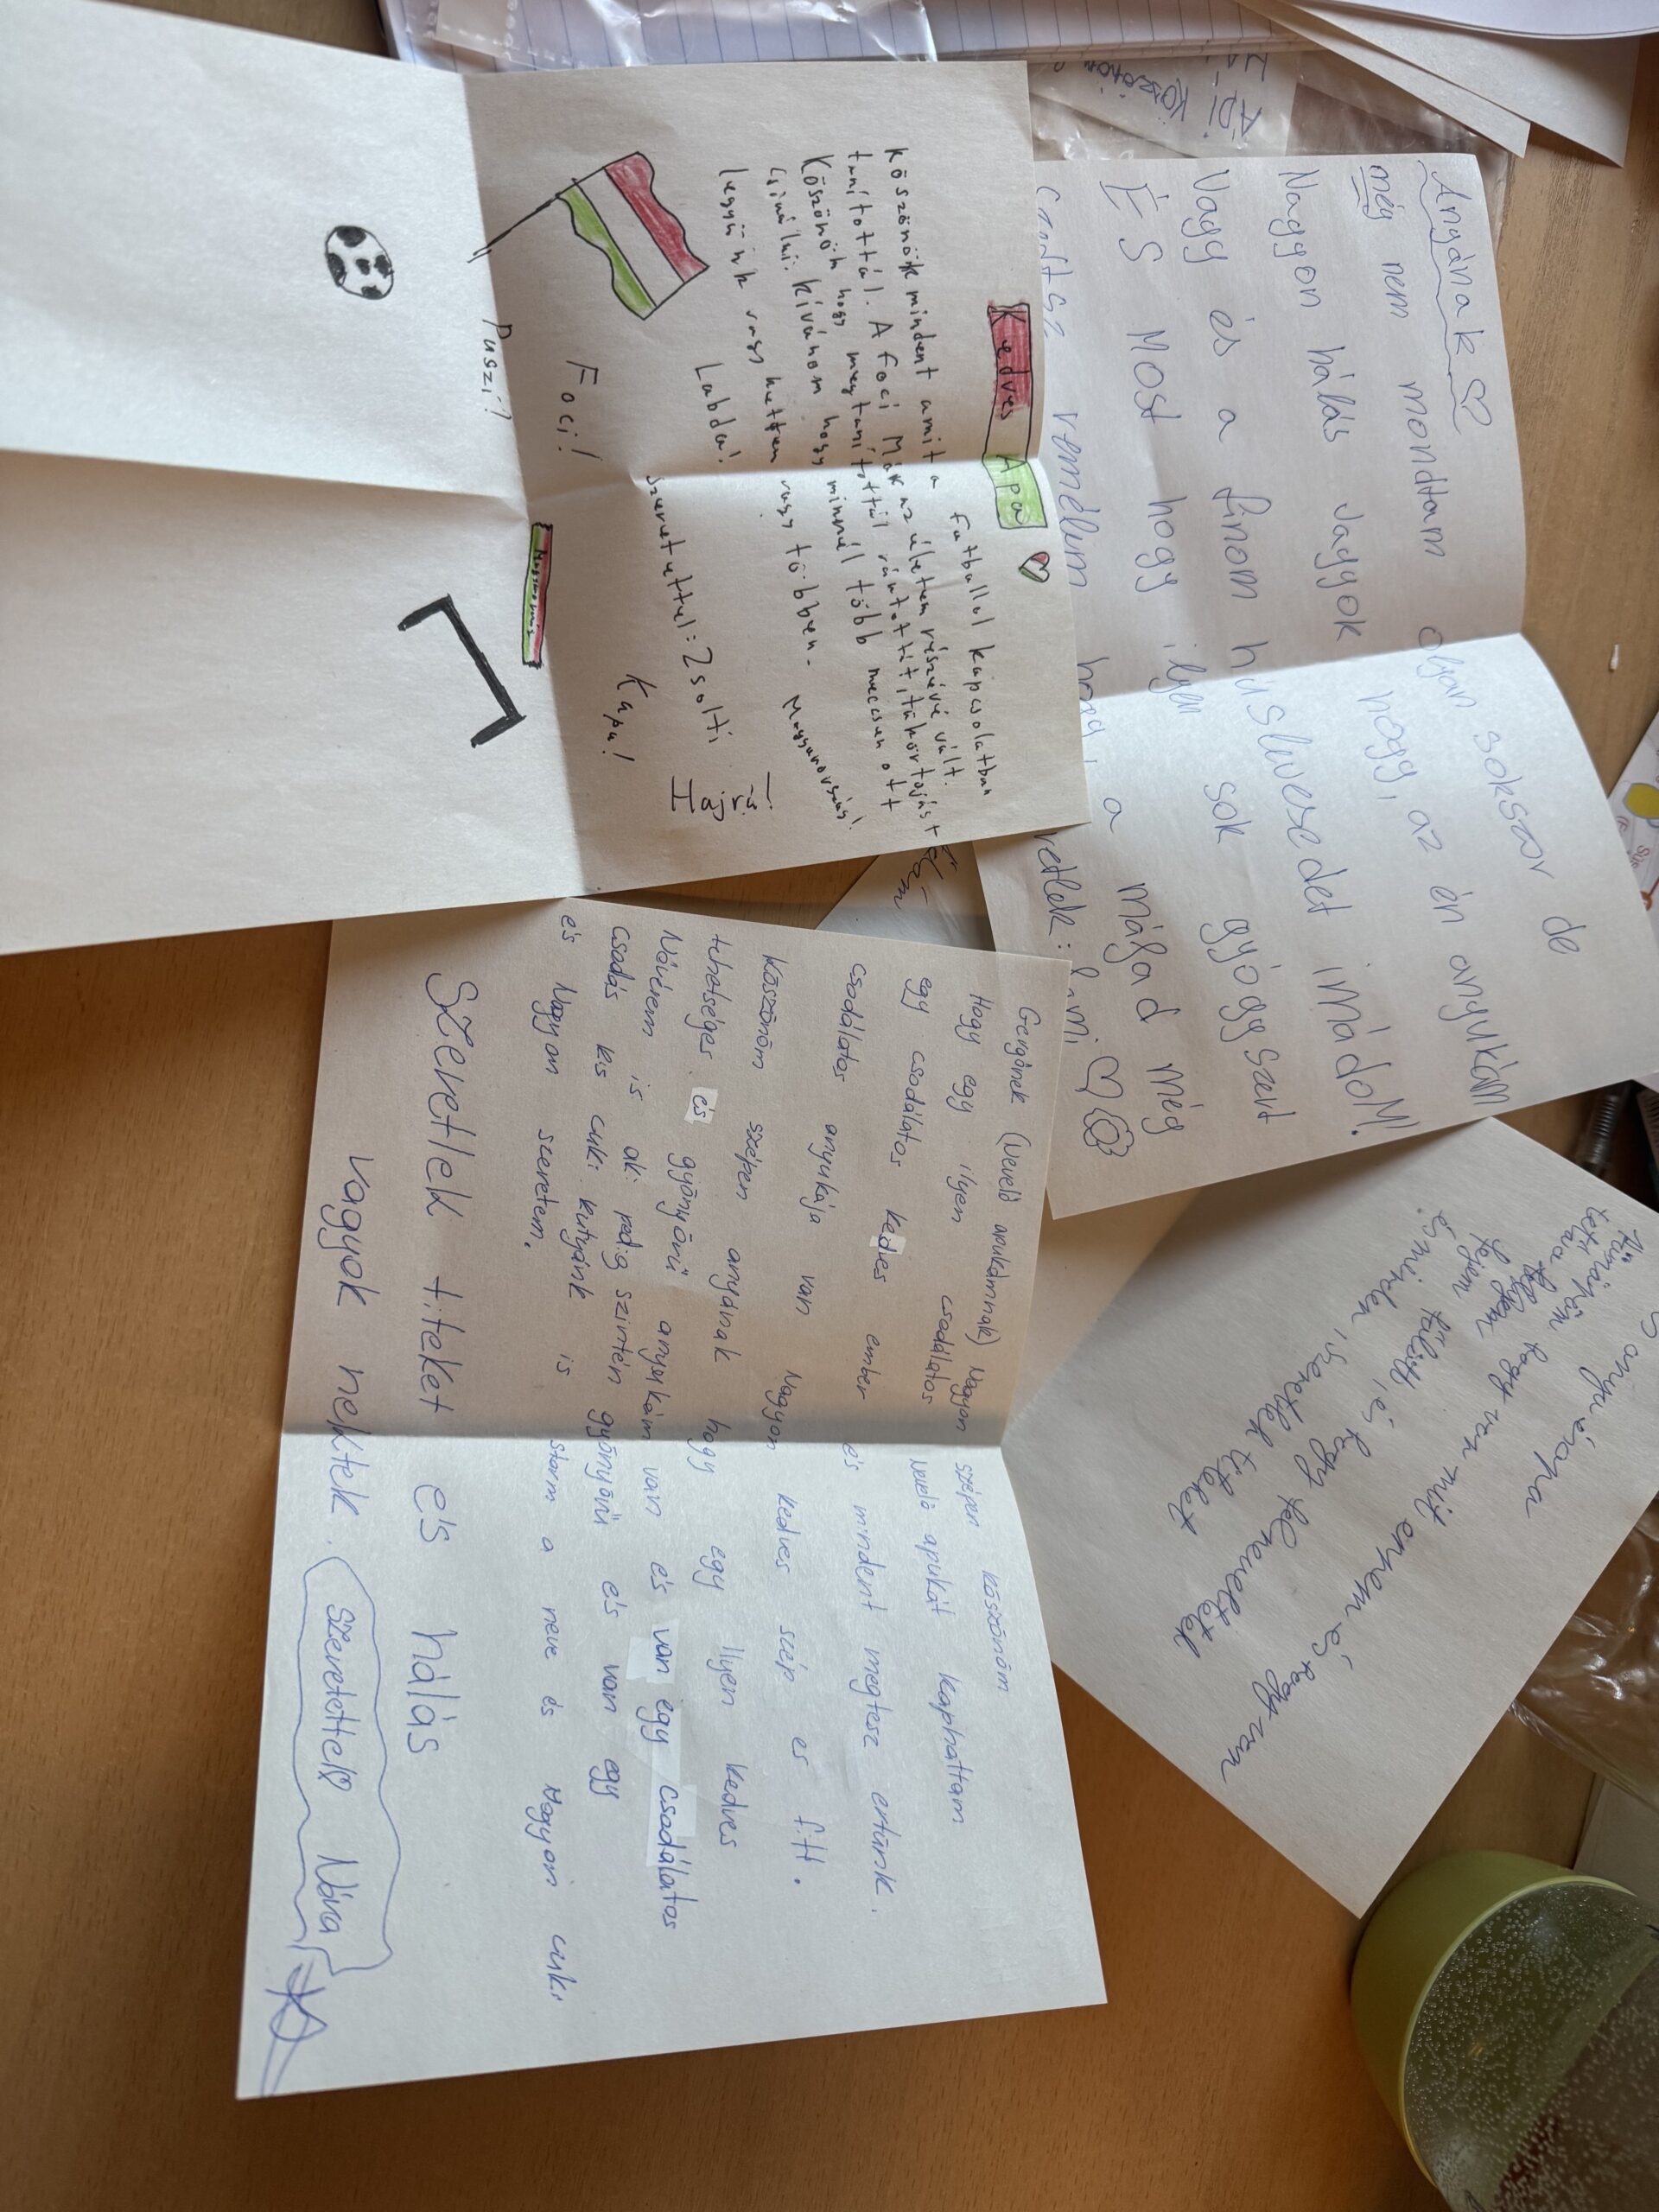 Anyának
még nem mondtam olyan sokszor de
Nagyon hálás vagyok hogy, az én anyukám
Vagy és a finom húslevesedet imádom!
És Most hogy ilyen sok gyógyszert
remélem hogy, a májad még
Kedves Apa
Köszönök mindent amit a futballal kapcsolatban
tanítottál. A foci Már az életem részévé vált.
Köszönöm hogy megtanítottál rántottát, tükörtojást
csinálni. kívánom hogy minnél több meccsen ott
legyünk vagy ketten vagy többben. Magyarország!
Labda! Szeretettel: Zsolti Hajrá!
Foci! Kapu!
Puszi!
Gergőnek (nevelő apukámnak) Nagyon szépen köszönöm
Hogy egy ilyen csodálatos nevelő apukát kaphattam
egy csodálatos kedves ember és mindent megtesz értünk.
csodálatos anyukája van Nagyon kedves szép és fitt.
Köszönöm szépen anyának hogy egy ilyen kedves
tehetséges és gyönyörű anyukám van és van egy csodálatos
Nővérem is aki pedig szintén gyönyörű és van egy
csodás kis cuki kutyánk is Storm a neve és Nagyon cuki
és Nagyon szeretem.
Szeretlek titeket és hálás
vagyok nektek.
Szeretettel Nóra
anya és apa
hogy van mit ennem és hogy van
és hogy felneveltetek
és minden szeretlek titeket